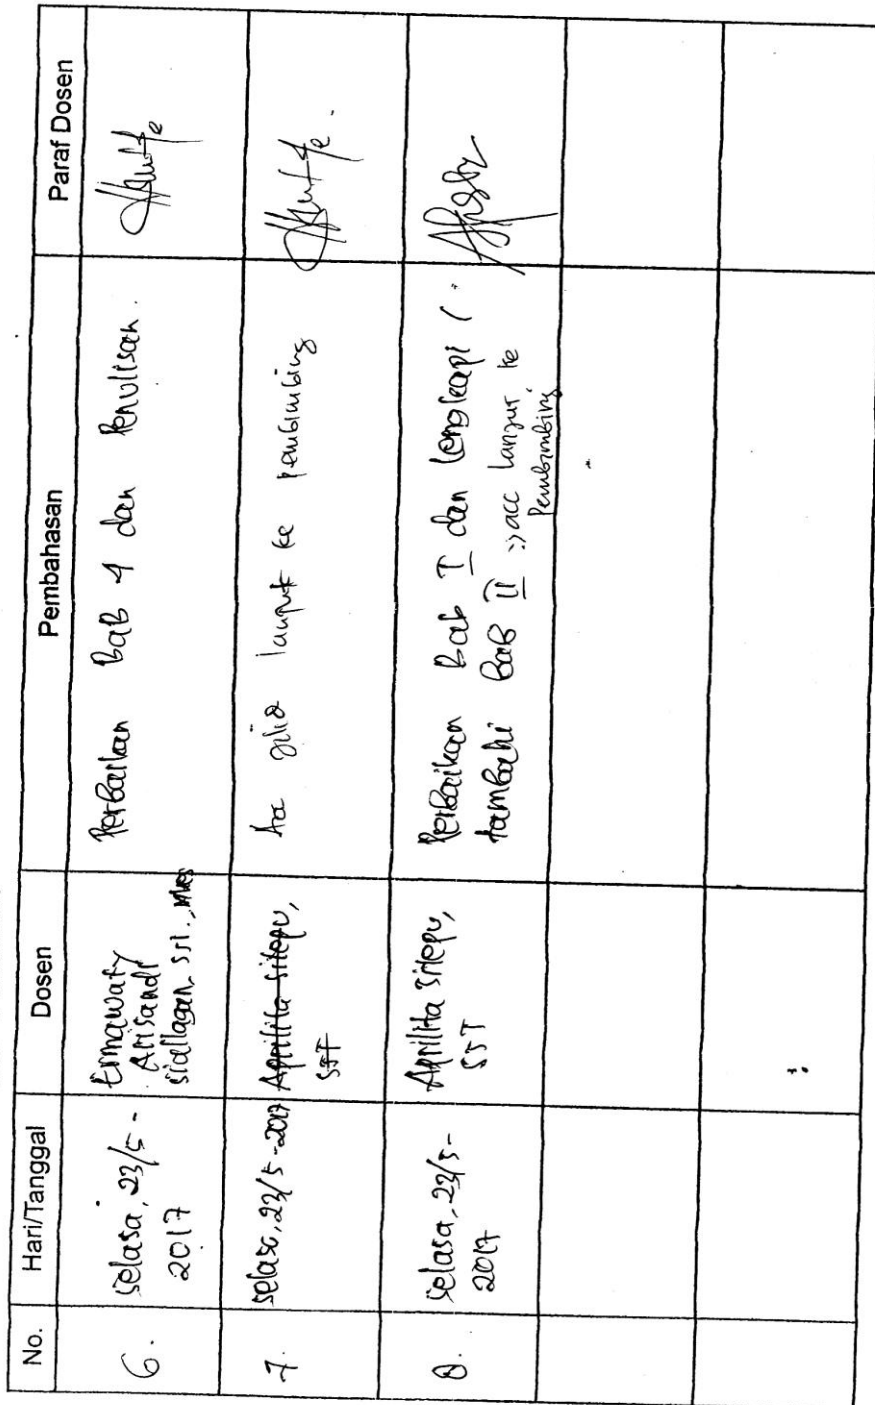 No. Hari/Tanggal Dosen Pembahasan Paraf Dosen
6. selasa, 23/5 -
2017
Ermawaty
Arisandi
siallagan, SST., Mkes
Perbaikan Bab 4 dan Penulisan.
7. selasa, 23/5 -2017
Aprilita Sitepu,
SST
Acc lanjut ke pembimbing
8. selasa, 23/5-
2017
Aprilita Sitepu,
SST
Perbaikan Bab I dan lengkapi
tambahi Bab II acc lanjut ke
Pembimbing